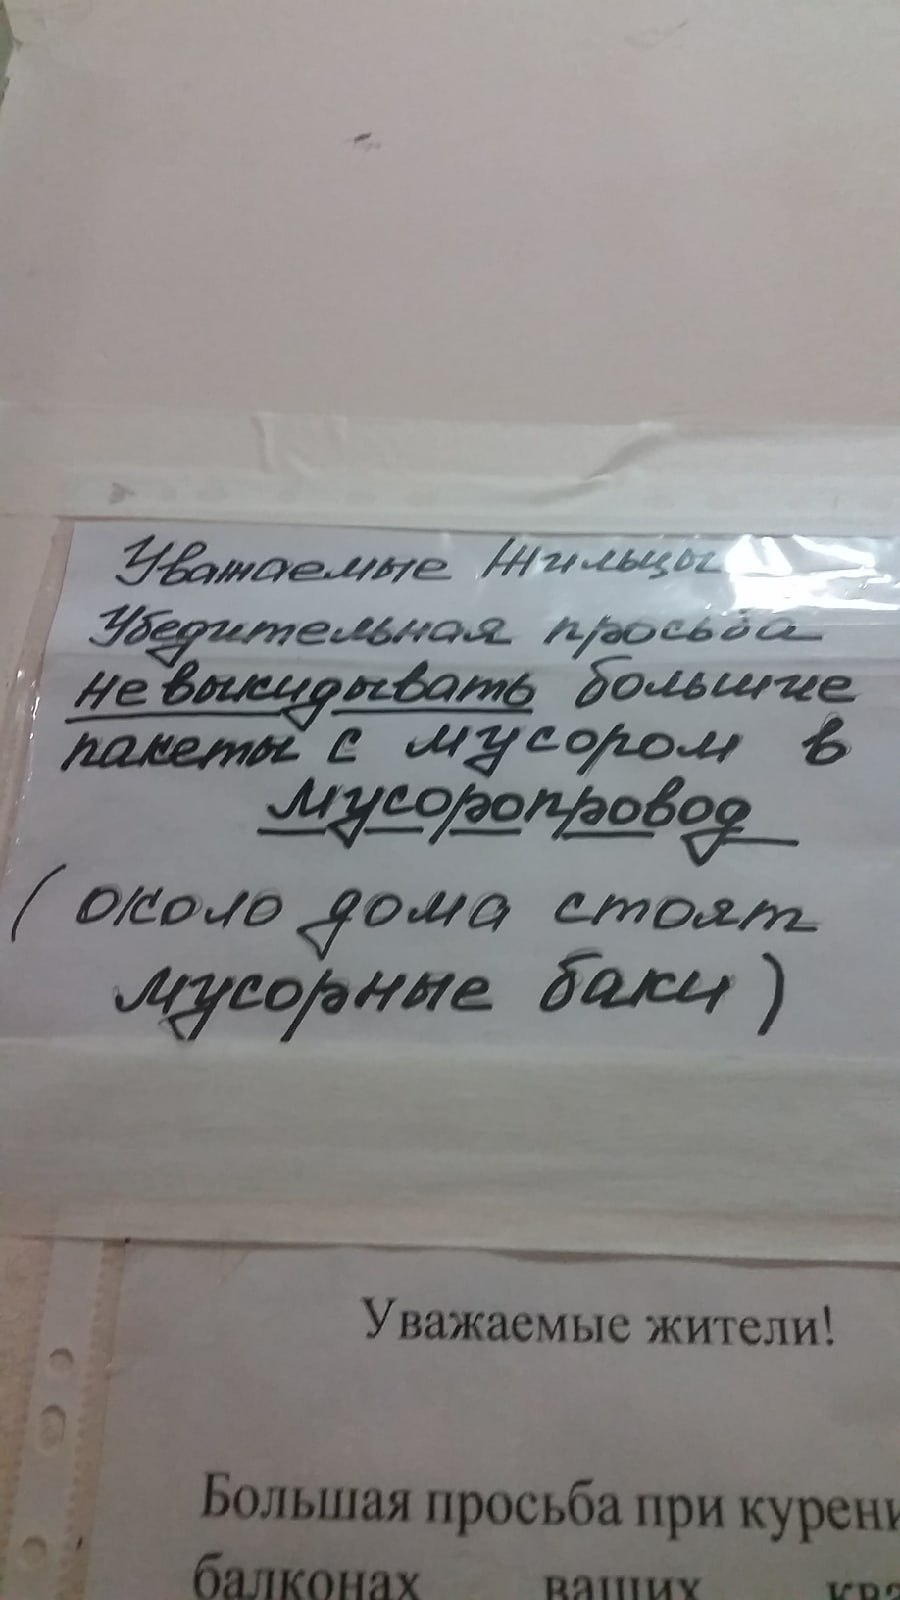 Уважаемые Жильцы
Убедительная просьба
не выкидывать большие
пакеты с мусором в
мусоропровод
(около дома стоят
мусорные баки)
Уважаемые жители!
Большая просьба при курени
балконах ваших ква